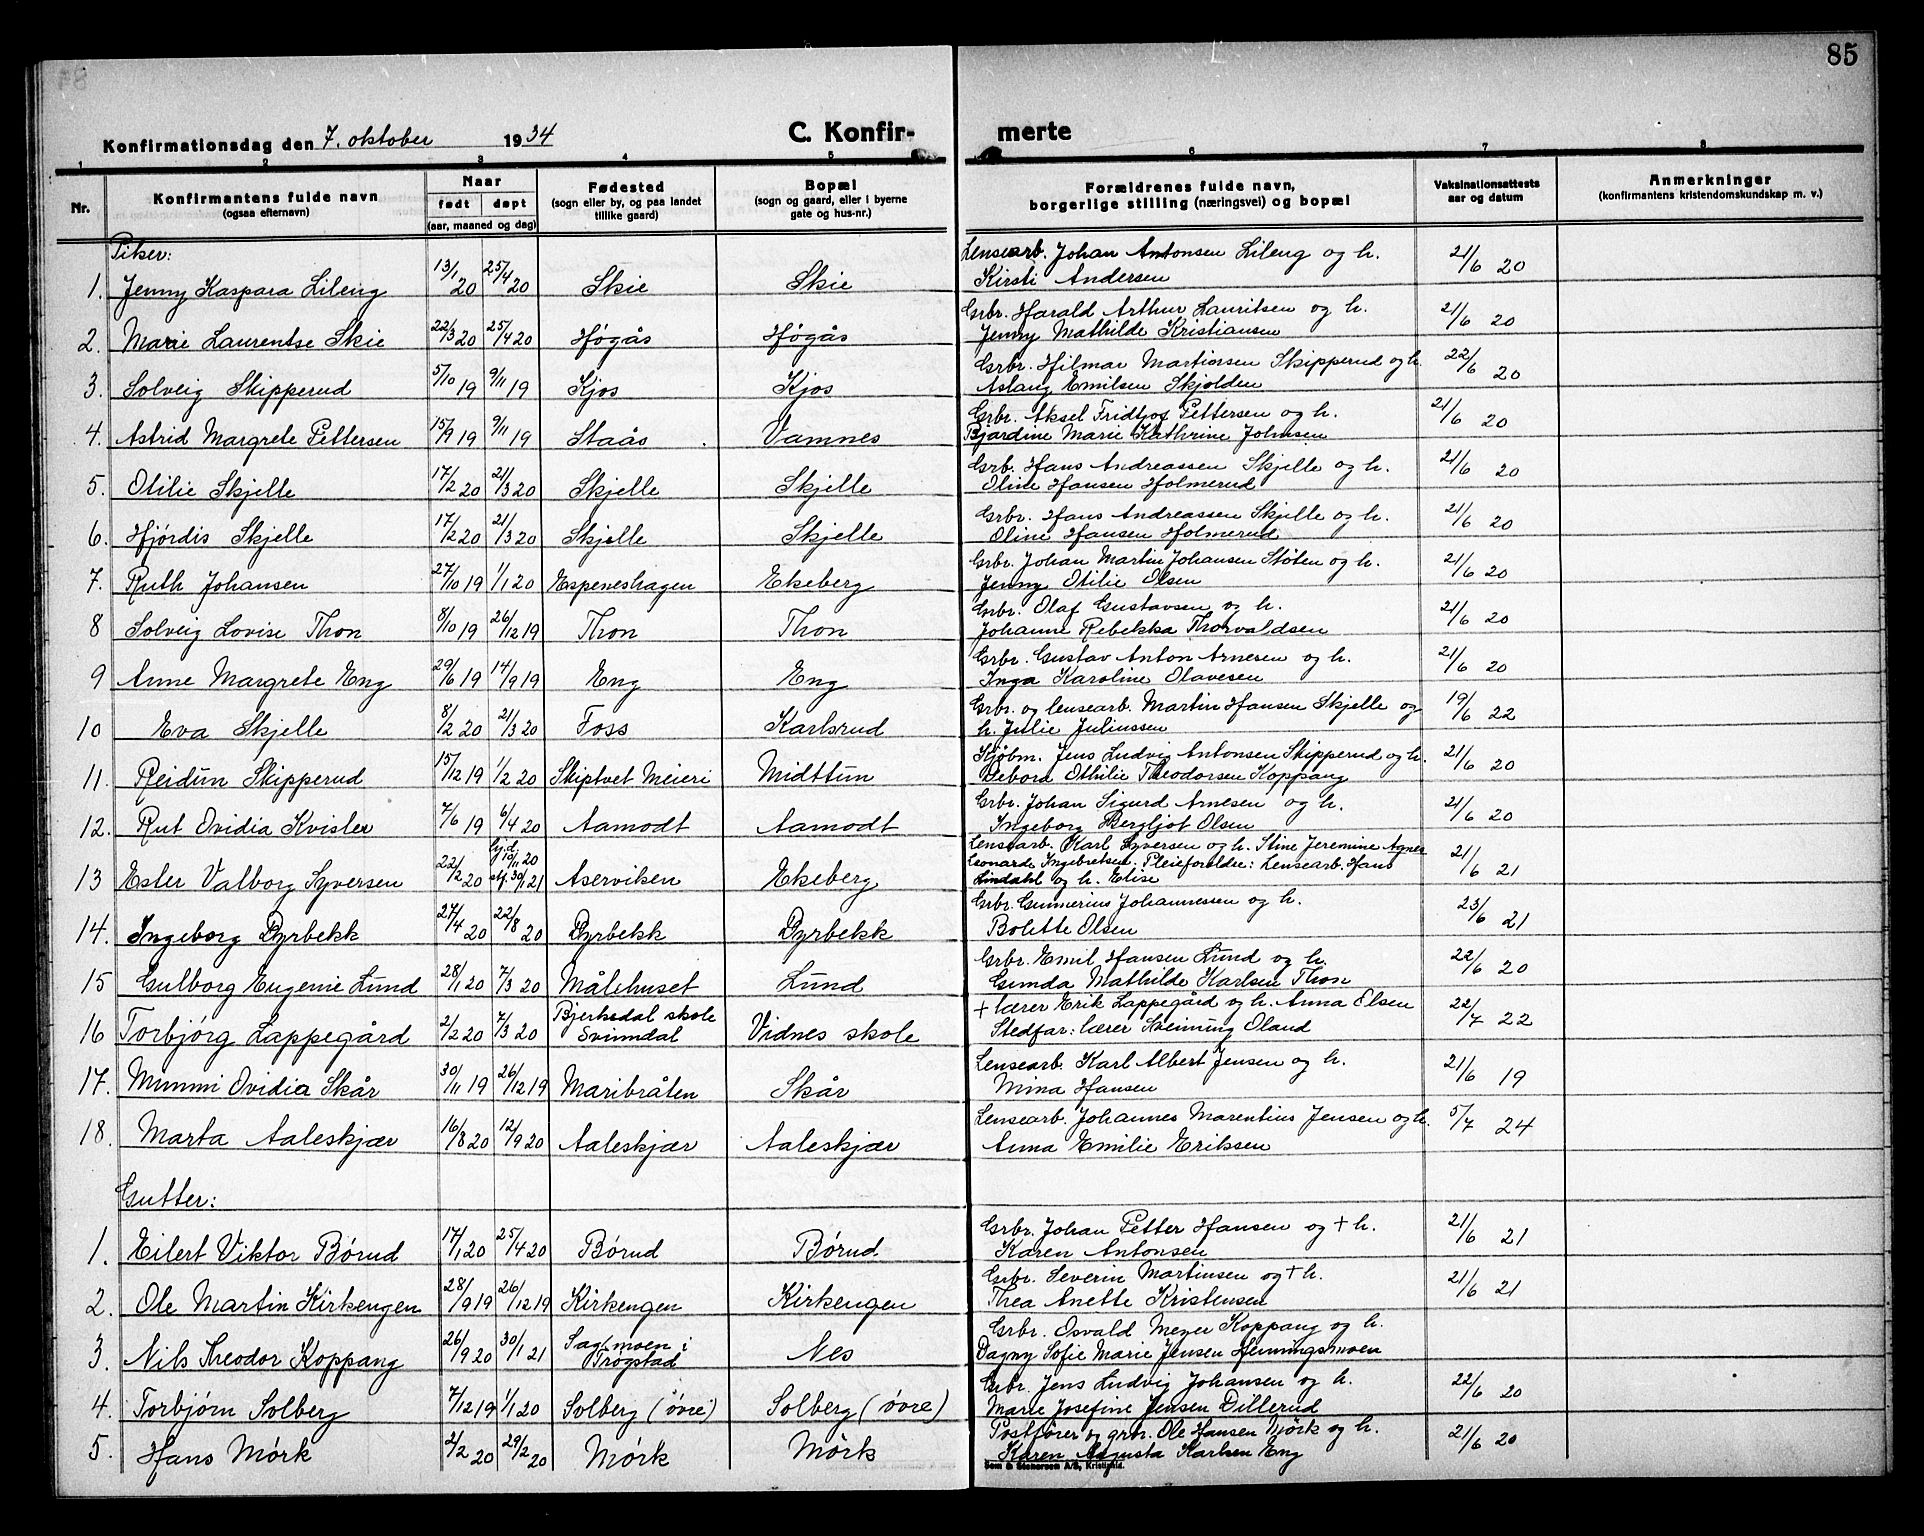 85
Konfirmationsdag den 7. oktober 1934
C. Konfir-
merte
1 2 3 4 5 6 7 8
Nr.
Konfirmantens fulde navn
(ogsaa efternavn)
Naar
født døpt
(aar, maaned og dag)
Fødested
(sogn eller by, og paa landet
tillike gaard)
Bopæl
(sogn og gaard, eller i byerne
gate og hus-nr.)
Forældrenes fulde navn,
borgerlige stilling (næringsvei) og bopæl
Vaksinationsattests
aar og datum
Anmerkninger
(konfirmantens kristendomskundskap m. v.)
Piker:
1. Jenny Kaspara Lileng 13/1 20 25/4 20 Skie Skie
Lensearb. Johan Antonsen Lileng og h. 21/6 20
Kirsti Andersen
2. Marie Laurentse Skie 22/3 20 25/4 20 Høgås Høgås
Grbr. Harald Arthur Lauritsen og h. 21/6 20
Jenny Mathilde Kristiansen
3. Solveig Skipperud 5/10 19 9/11 19 Kjos Kjos
Grbr. Hilmar Martinsen Skipperud og h. 22/6 20
Aslaug Emilsen Skjolden
4. Astrid Margrete Pettersen 15/9 19 9/11 19 Staås Vamnes
Grbr. Aksel Fridtjof Pettersen og h. 21/6 20
Bjardine Marie Kathrine Johnsen
5. Otilie Skjelle 17/2 20 21/3 20 Skjelle Skjelle
Grb. Hans Andreassen Skjelle og h. 21/6 20
Oline Hansen Holmerud
6. Hjørdis Skjelle 17/2 20 21/3 20 Skjelle Skjelle
Grbr. Hans Andreassen Skjelle og h. 21/6 20
Oline Hansen Holmerud
7. Ruth Johansen 27/10 19 1/1 20 Espeneshagen Ekeberg
Grbr. Johan Martin Johansen Støten og h. 21/6 20
Jenny Otilie Olsen
8 Solveig Lovise Thon 8/10 19 26/12 19 Thon Thon
Grbr. Olaf Gustavsen og h. 21/6 20
Johanne Rebekka Thorvaldsen
9 Anne Margrete Eng 29/6 19 14/9 19 Eng Eng
Grbr. Gustav Anton Arnesen og h. 21/6 20
Inga Karoline Olavesen
10 Eva Skjelle 8/2 20 21/3 20 Foss Karlsrud
Grbr. og lensearb. Martin Hansen Skjelle og 19/6 22
h. Julie Juliussen
11. Reidun Skipperud 15/12 19 1/2 20 Skiptvet Meieri Midttun
Kjøbm. Jens Ludvig Antonsen Skipperud og h. 21/6 20
Debora Othilie Theodorsen Koppang
12. Rut Ovidia Kvisler 7/6 19 6/4 20 Aamodt Aamodt
Grbr. Johan Sigurd Arnesen og h. 21/6 20
Ingeborg Bergljot Olsen
13 Ester Valborg Syversen 22/2 20 hj.d. 10/11 20 stf. 30/1 21 Aserviken Ekeberg
Lensearb. Karl Syversen og h. Stine Jeremine Agnes
Leonarde Ingebretsen. Pleieforeldre: Lensearb. Hans 21/6 21
Lindahl og h. Elise
14. Ingeborg Dyrbekk 27/4 20 22/8 20 Dyrbekk Dyrbekk
Grbr. Gunnerius Johannessen og h. 23/6 21
Bolette Olsen
15 Gulborg Eugenie Lund 28/1 20 7/3 20 Målehuset Lund
Grbr. Emil Hansen Lund og h. 22/6 20
Gunda Mathilde Karlsen Thon
16 Torbjørg Lappegård 2/2 20 7/3 20 Bjerkedal skole Svinndal Vidnes skole
+ lærer Erik Lappegård og h. Anna Olsen 22/7 22
Stedfar: lærer Sveinung Oland
17. Mimmi Ovidia Skår 30/11 19 26/12 19 Maribråten Skår
Lensearb. Karl Albert Jensen og h. 21/6 19
Mina Hansen
18. Marta Aaleskjær 16/8 20 12/9 20 Aaleskjær Aaleskjær
Lensearb. Johannes Marentius Jensen og h. 5/7 24
Anna Emilie Eriksen
Gutter:
1. Eilert Viktor Børud 17/1 20 25/4 20 Børud Børud
Grbr. Johan Petter Hansen og + h. 21/6 21
Karen Antonsen
2. Ole Martin Kirkengen 28/9 19 26/12 19 Kirkengen Kirkengen
Grbr. Severin Martinsen og + h. 21/6 21
Thea Anette Kristensen
3. Nils Theodor Koppang 26/9 20 30/1 21 Sagmoen i Trøgstad Nes
Grbr. Osvald Meyer Koppang og h.
Dagny Sofie Marie Jensen Henningsmoen
4. Torbjørn Solberg 7/12 19 1/1 20 Solberg (øvre) Solberg (øvre)
Grbr. Jens Ludvig Johansen og h. 22/6 20
Marie Josefine Jensen Dillerud
5. Hans Mørk 2/2 20 29/2 20 Mørk Mørk
Postfører og grbr. Ole Hansen Mørk og h. 21/6 20
Karen Augusta Karlsen Eng